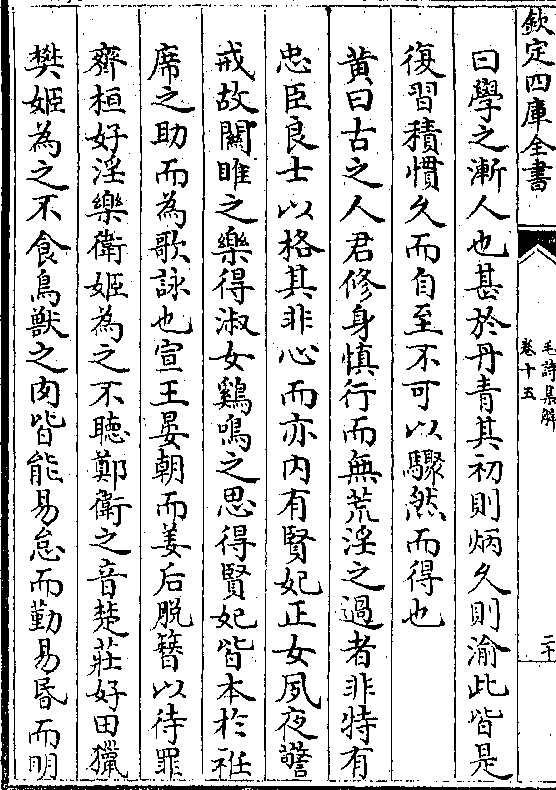 欽定四庫全書
毛詩集解
卷十五
二十
曰學之漸人也甚於丹青其初則炳久則渝此皆是
復習積慣久而自至不可以驟然而得也
黄曰古之人君修身慎行而無荒淫之過者非特有
忠臣良士以格其非心而亦内有賢妃正女夙夜警
戒故關雎之樂得淑女鷄鳴之思得賢妃皆本於袵
席之助而為歌詠也宣王晏朝而姜后脱簪以待罪
齊桓好淫樂衛姬為之不聽鄭衛之音楚莊好田獵
樊姬為之不食鳥獸之肉皆能易怠而勤易昬而明